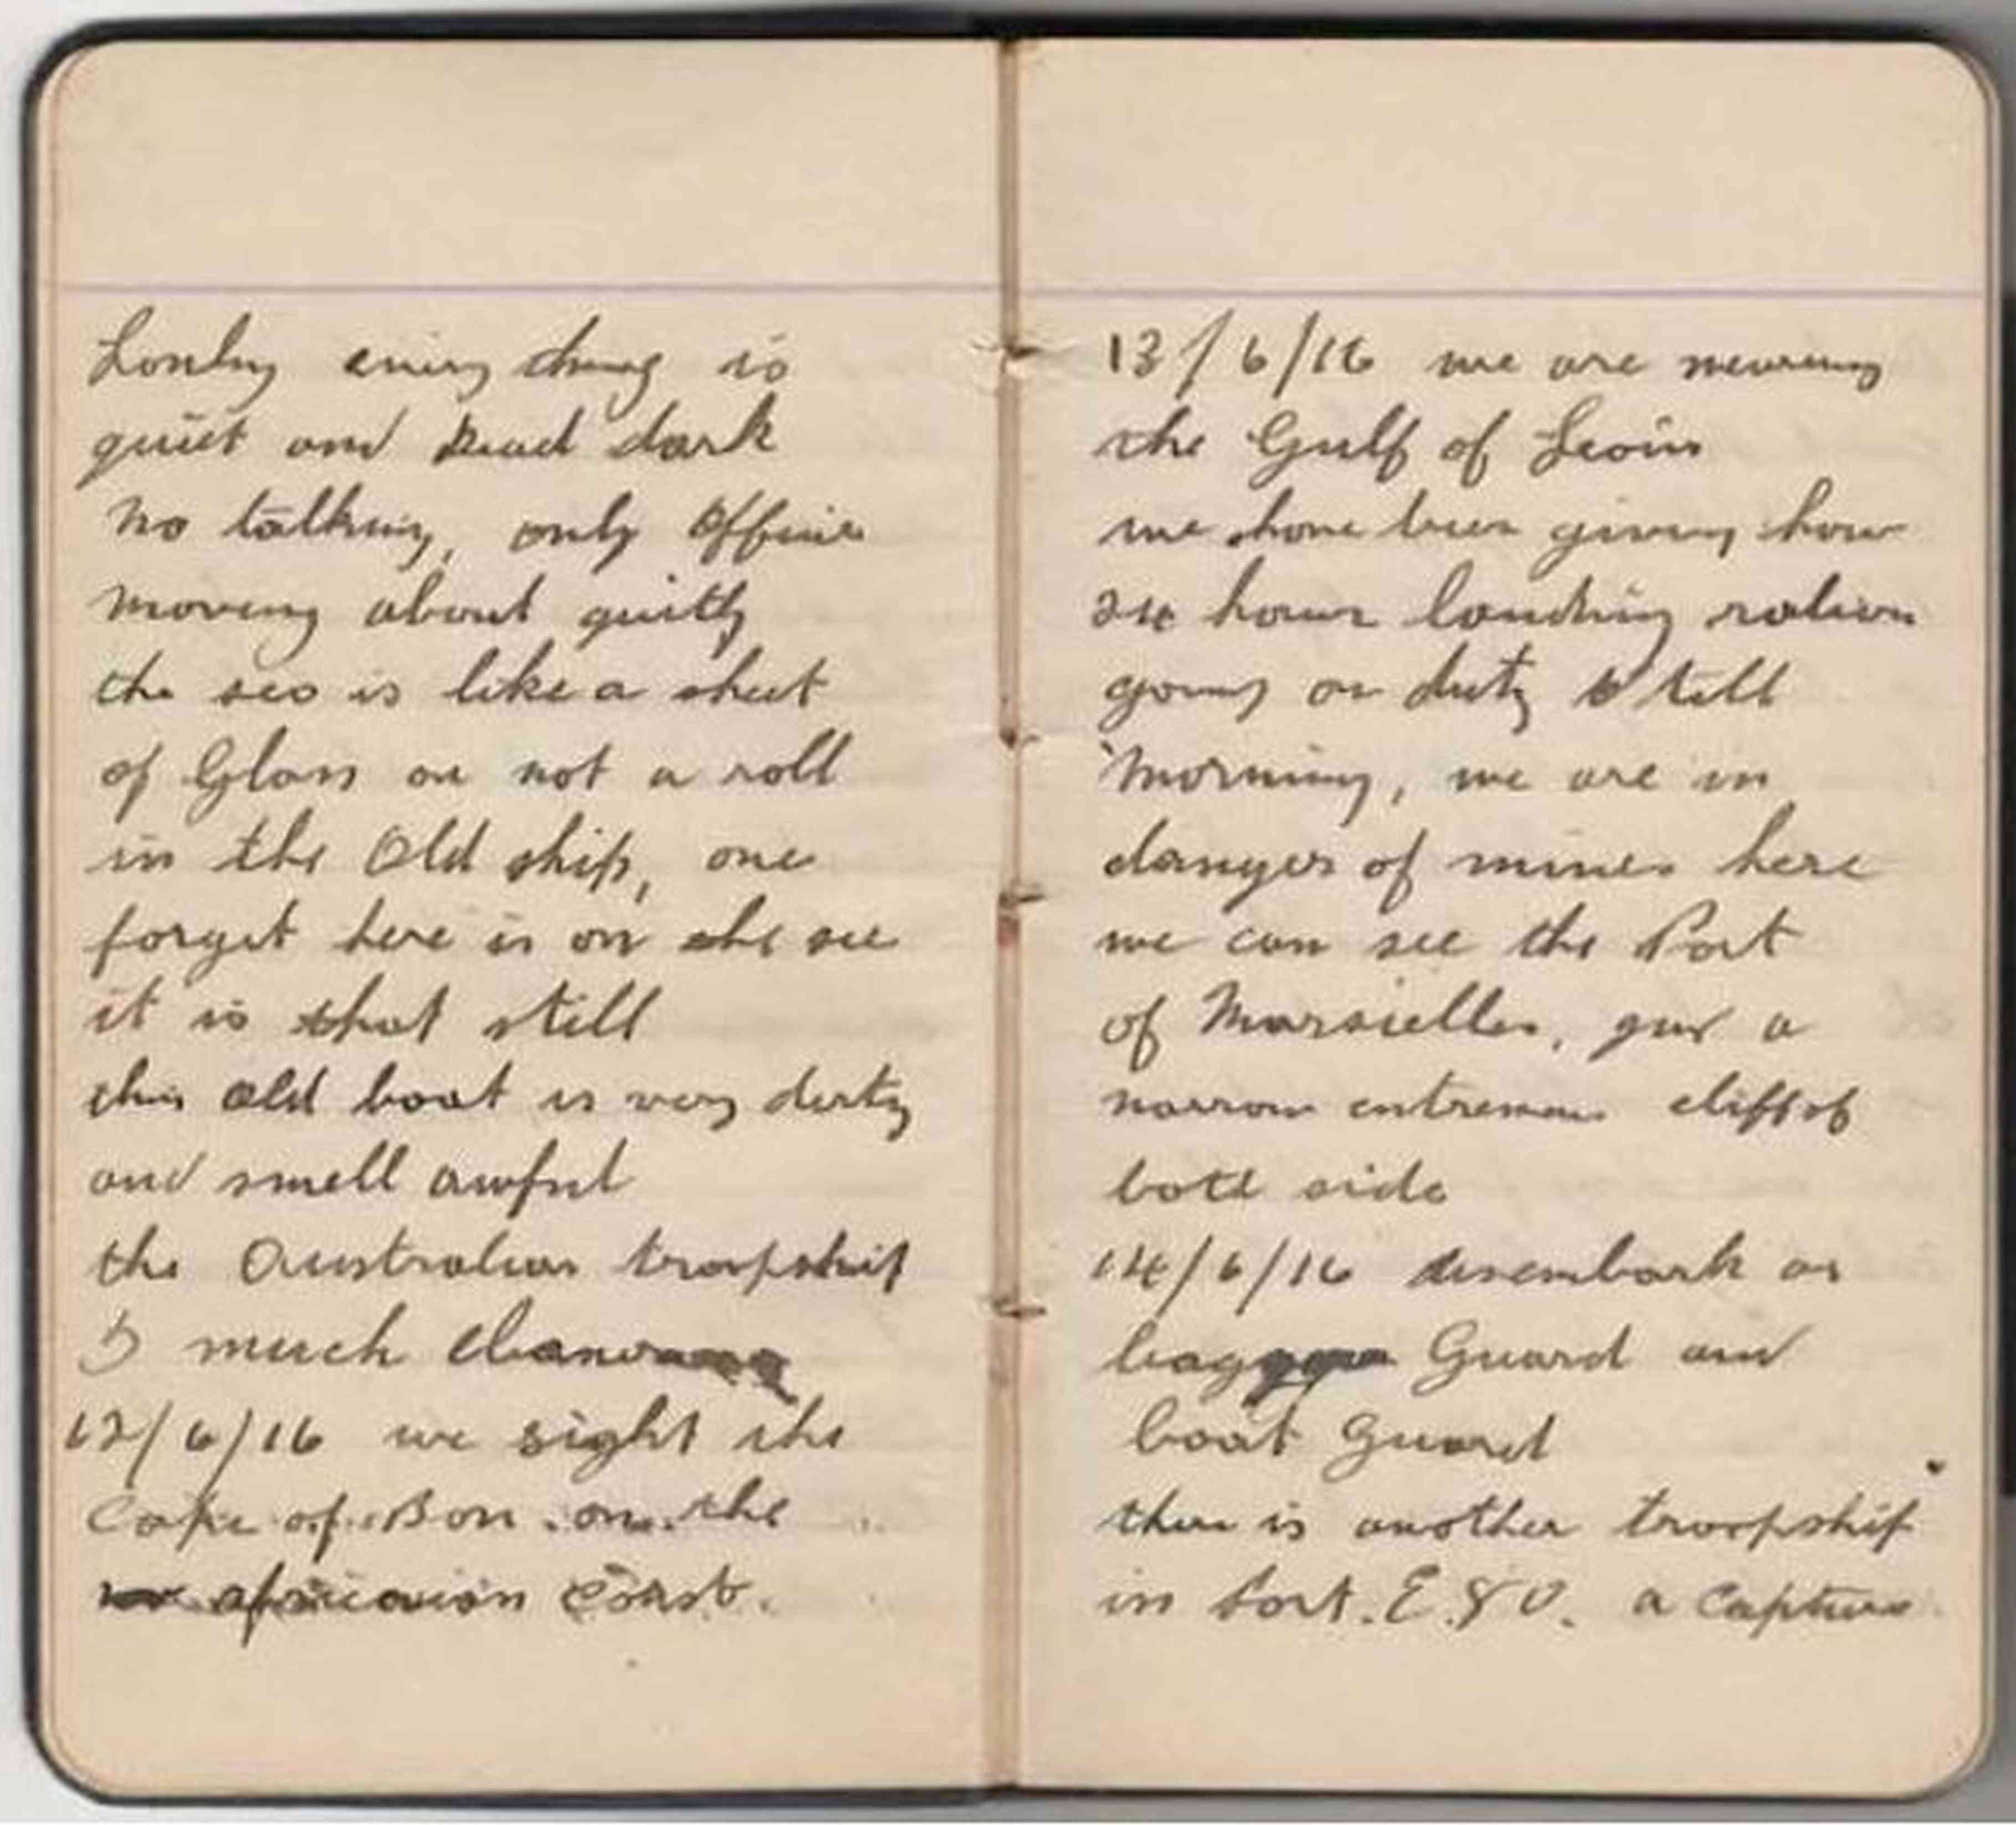 Lonley every thing is
quiet and dead dark
No talking, only Officer
moving about quitly
the sea is like a sheet
of Glass or not a roll
in the Old ship, one
forget here is on the sea
it is that still
this old boat is very dirty
and smell awful
the Australian troopship
is much
12/6/16 we sight the
Cape of Bon on the
africaian Coast.
13/6/16 we are nearing
the Gulf of
we have been given
24 hours landing ration
going on duty till
Morning, we are in
danger of mines here
we can see the Port
of Marsielles, a
narrow cliff of
both side
14/6/16 disembark as
Guard and
boat Guard
there is another troopship
in Port. a Capture